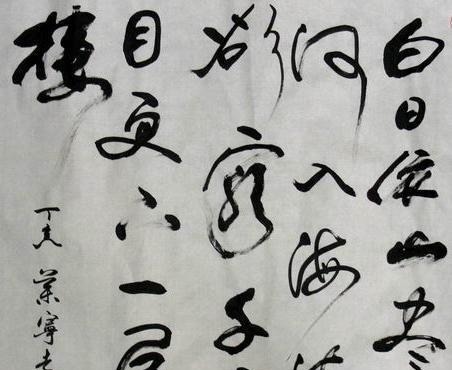 白日依山尽
河入海
欲窮千
目更上一
樓
丁亥